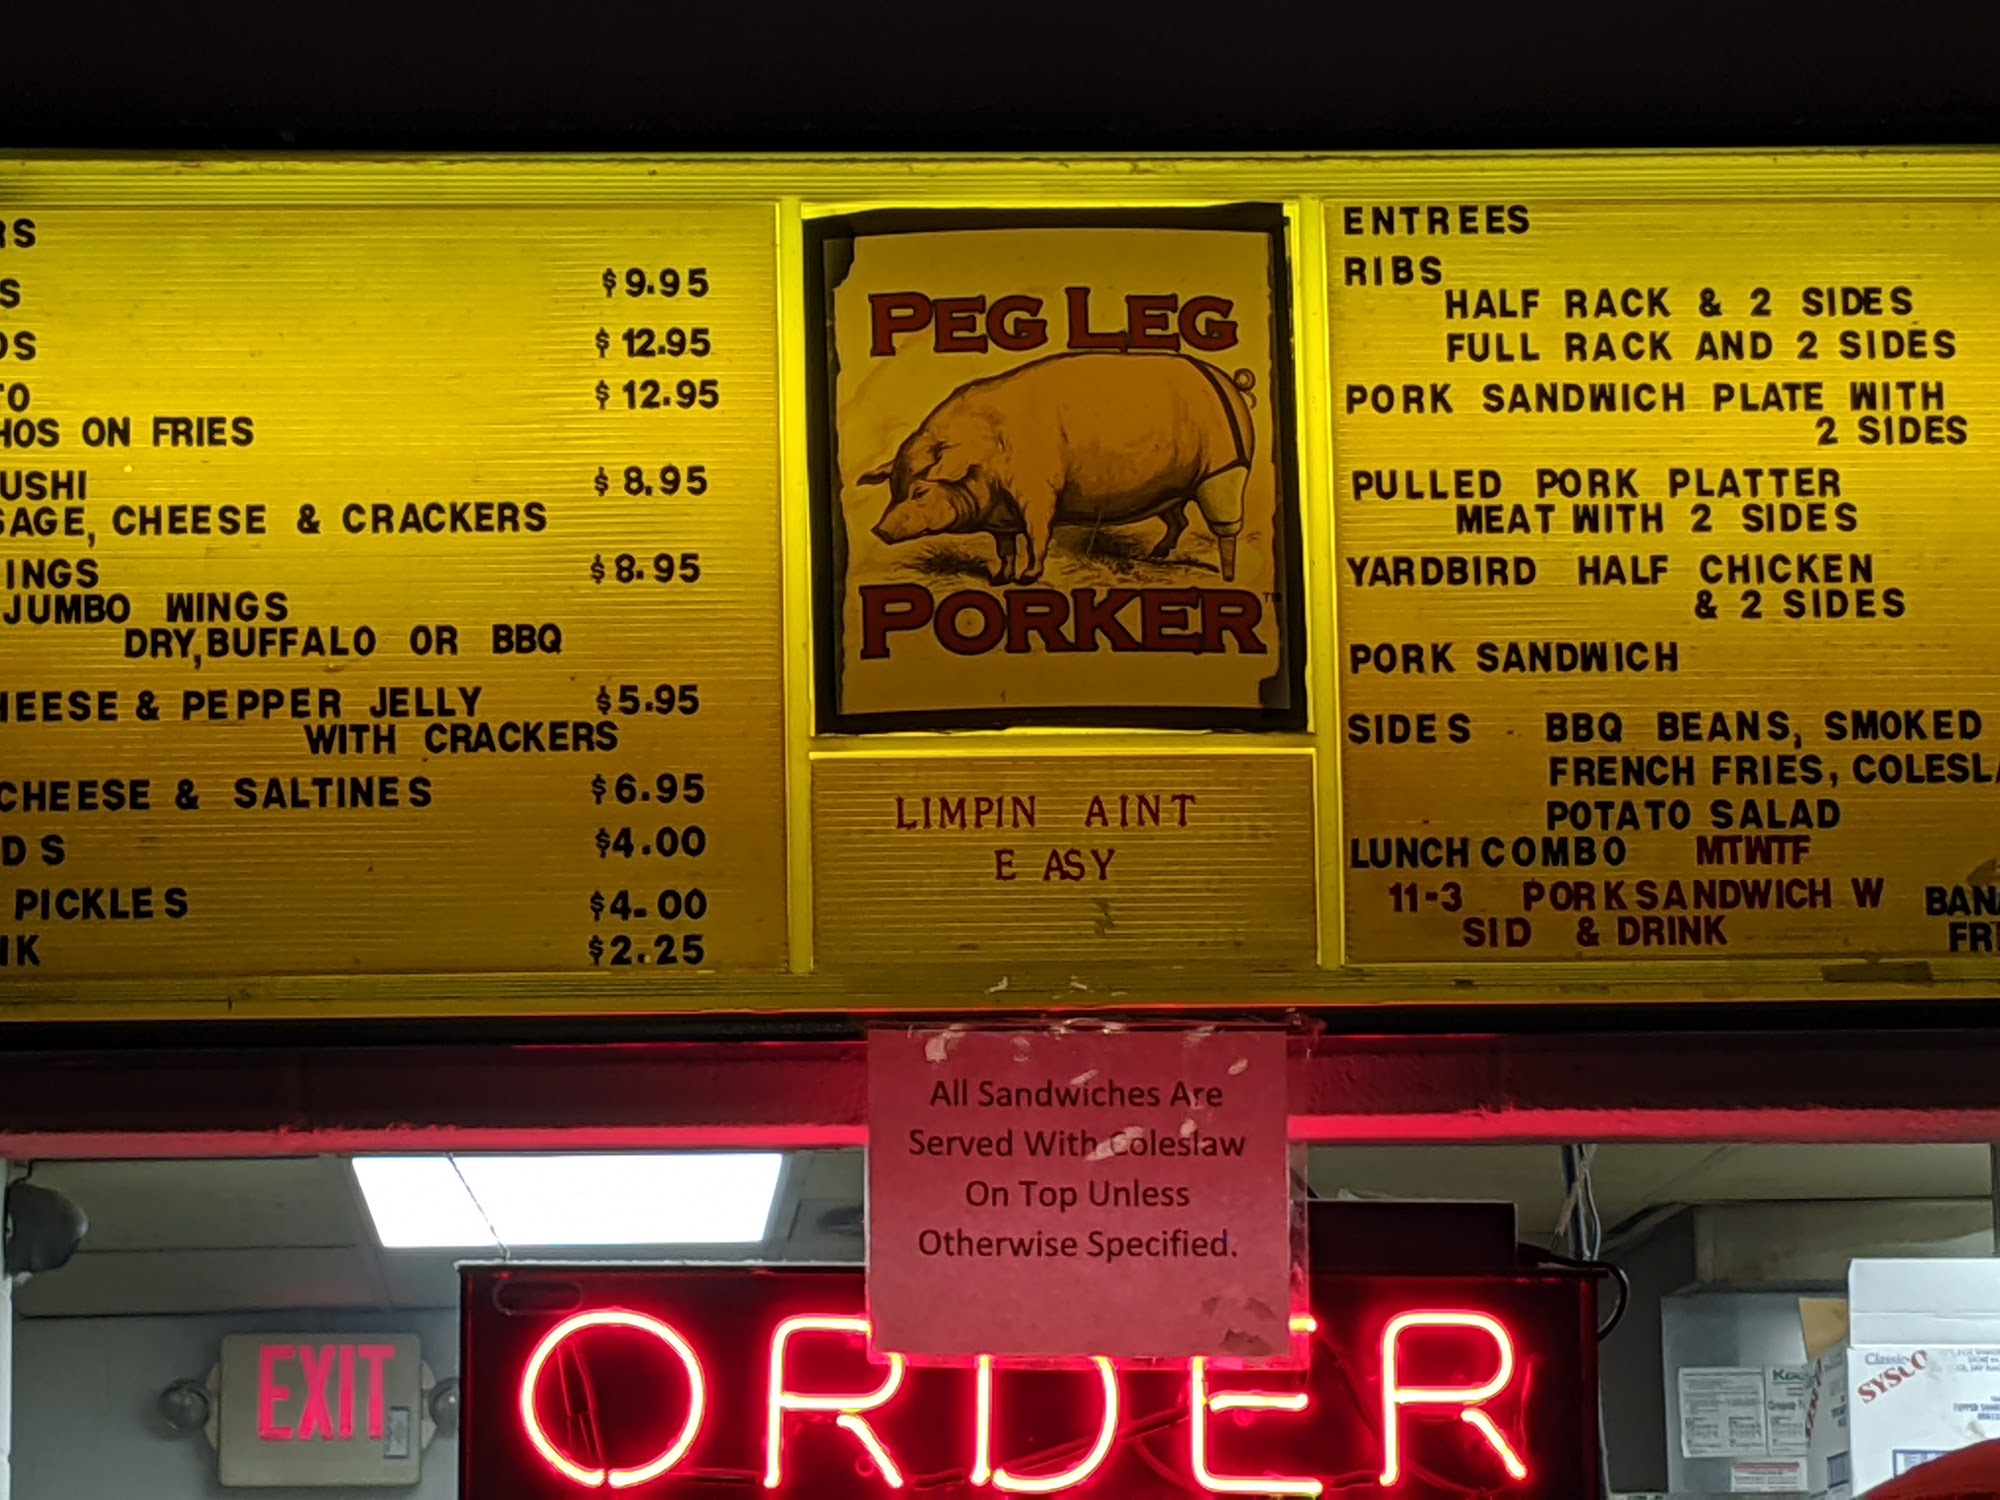 $9.95
$12.95
$12.95
ON FRIES
$8.95
CHEESE & CRACKERS
$8.95
JUMBO WINGS
DRY, BUFFALO OR BBQ
& PEPPER JELLY $5.95
WITH CRACKERS
CHEESE & SALTINES $6.95
$4.00
PICKLES $4.00
$2.25
PEG LEG
PORKER™
LIMPIN AINT
EASY
ENTREES
RIBS
HALF RACK & 2 SIDES
FULL RACK AND 2 SIDES
PORK SANDWICH PLATE WITH
2 SIDES
PULLED PORK PLATTER
MEAT WITH 2 SIDES
YARDBIRD HALF CHICKEN
& 2 SIDES
PORK SANDWICH
SIDES BBQ BEANS, SMOKED
FRENCH FRIES,
POTATO SALAD
LUNCH COMBO MTWTF
11-3 PORK SANDWICH W
SID & DRINK
All Sandwiches Are
Served With Coleslaw
On Top Unless
Otherwise Specified.
ORDER
EXIT
Classic
SYSCO